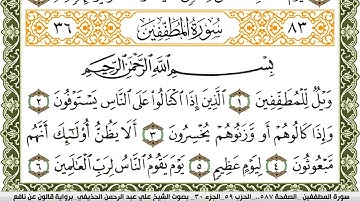 ٨٣ سُورَةُ الْمُطَفِّفِينَ ٣٦
بِسْمِ اللَّهِ الرَّحْمَٰنِ الرَّحِيمِ
وَيْلٌ لِّلْمُطَفِّفِينَ ١ الَّذِينَ إِذَا اكْتَالُوا عَلَى النَّاسِ يَسْتَوْفُونَ ٢
وَإِذَا كَالُوهُمْ أَو وَّزَنُوهُمْ يُخْسِرُونَ ٣ أَلَا يَظُنُّ أُولَٰئِكَ أَنَّهُم
مَّبْعُوثُونَ ٤ لِيَوْمٍ عَظِيمٍ ٥ يَوْمَ يَقُومُ النَّاسُ لِرَبِّ الْعَالَمِينَ ٦
سورة المطففين _ الصفحة ٥٨٧ .. الحزب ٥٩ الجزء ٣٠ _ بصوت الشيخ علي عبد الرحمن الحذيفي _ برواية قالون عن نافع